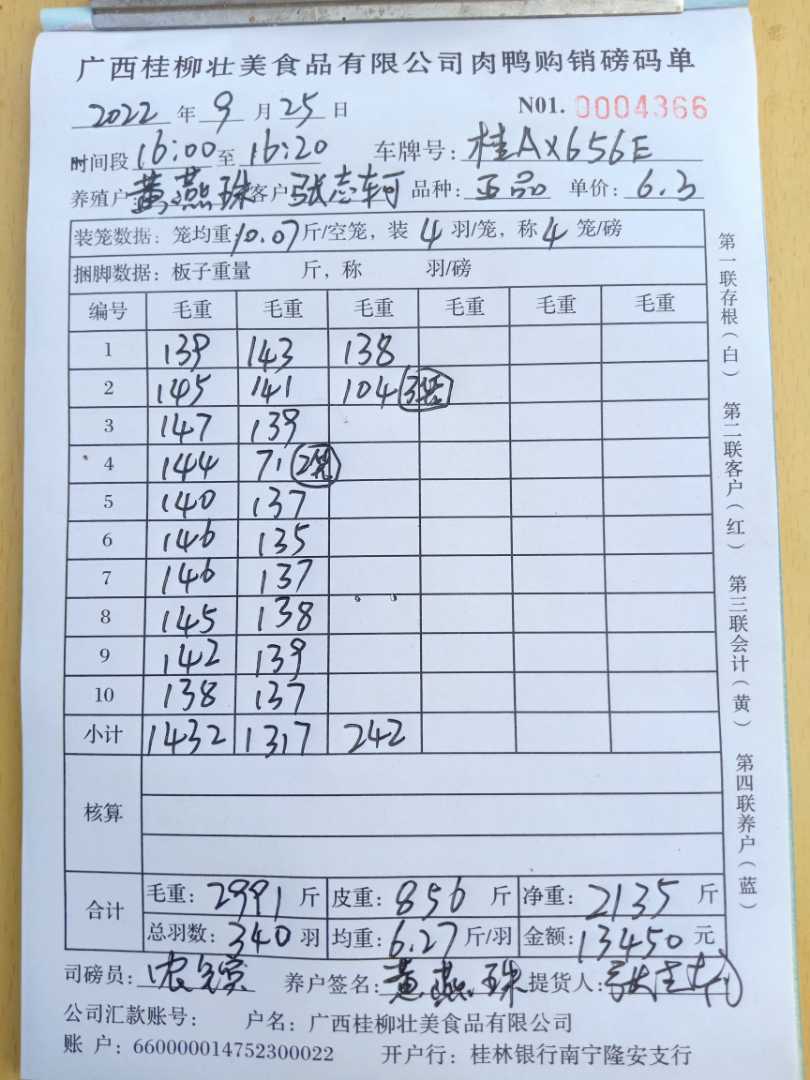 广西桂柳壮美食品有限公司肉鸭购销磅码单
2022 年 9 月 25 日 N01. 0004366
时间段 16:00 至 16:20 车牌号: 桂AX656E
养殖户: 黄燕珠 客户 张志轲 品种: 正品 单价: 6.3
装笼数据: 笼均重 10.07 斤/空笼, 装 4 羽/笼, 称 4 笼/磅
捆脚数据: 板子重量 斤, 称 羽/磅
编号 毛重 毛重 毛重 毛重 毛重 毛重
1 139 143 138
2 145 141 104 3笼
3 147 139
4 144 71 2笼
5 140 137
6 146 135
7 146 137
8 145 138
9 142 139
10 138 137
小计 1432 1317 242
核算
合计 毛重: 2991 斤 皮重: 856 斤 净重: 2135 斤
总羽数: 340 羽 均重: 6.27 斤/羽 金额: 13450 元
司磅员: 养户签名: 黄燕珠 提货人:
公司汇款账号: 户名: 广西桂柳壮美食品有限公司
账 户: 660000014752300022 开户行: 桂林银行南宁隆安支行
第一联存根(白) 第二联客户(红) 第三联会计(黄) 第四联养户(蓝)